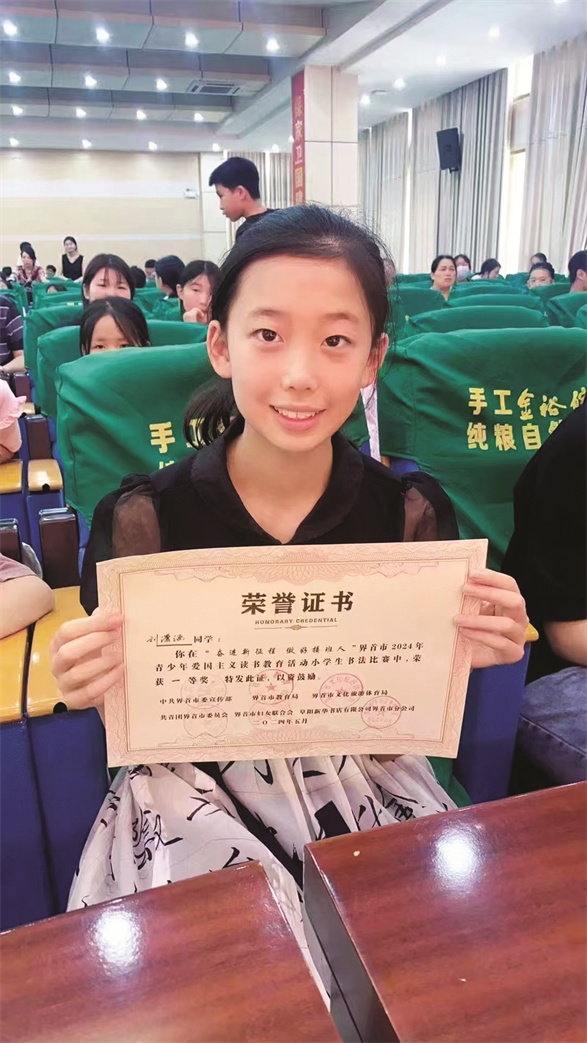 保家卫国
手工金裕
纯粮自
手工
纯
荣誉证书
HONORARY CREDENTIAL
刘潇涵 同学：
你在“奋进新征程 做好接班人”界首市2024年
青少年爱国主义读书教育活动小学生书法比赛中，荣
获 一 等奖。特发此证，以资鼓励。
中共界首市委宣传部 界首市教育局 界首市文化旅游体育局
共青团界首市委员会 界首市妇女联合会 阜阳新华书店有限公司界首市分公司
二〇二四年五月